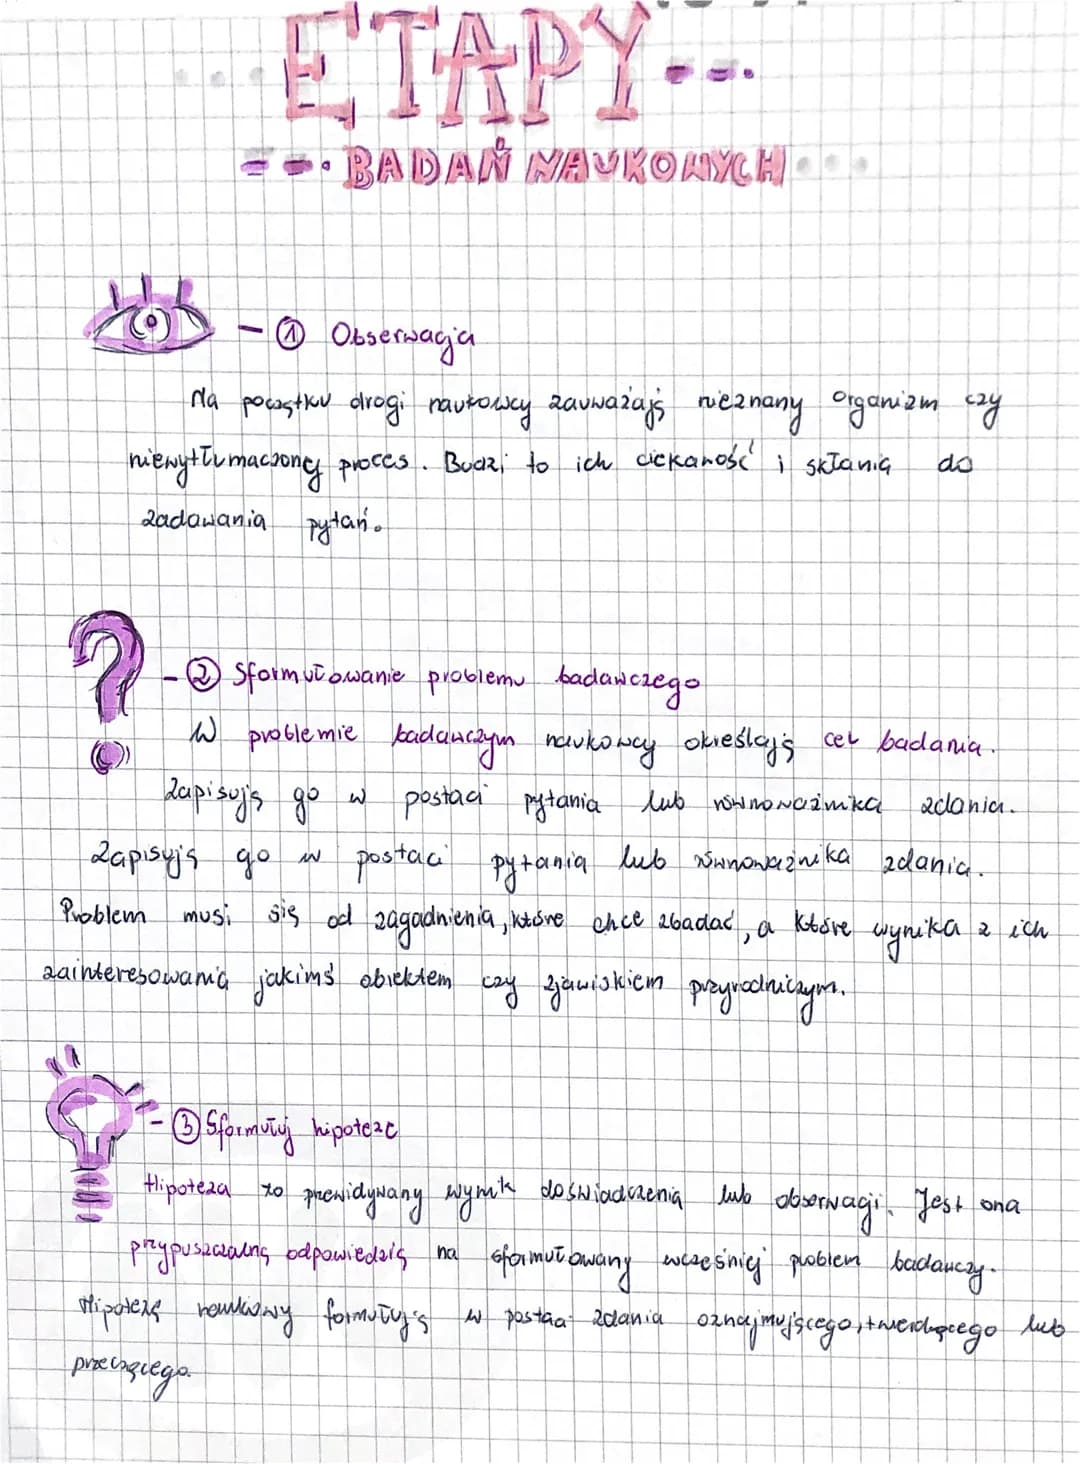 ETAPY
BADAŃ NAUKOWYCH
- ① Obserwacja
Na początku drogi naukowcy zauważają nieznany organizm czy
niewytłumaczoney proces. Budzi to ich ciekaność i skłania do
zadawania pytań.
- ② Sformułowanie problemu badawczego
W problemie badawczym naukowcy określają cel badania.
Zapisują go w postaci pytania lub równoważnika zdania.
Zapisyją go w postaci pytania lub równoważnika zdania.
Problem musi się od zagadnienia, które chce zbadać, a które wynika z ich
zainteresowania jakimś obiektem czy zjawiskiem przyrodniczym.
- ③ Sformułuj hipotezę
Hipoteza to przewidywany wynik doświadczenia lub obserwacji. Jest ona
przypuszczalną odpowiedzią na sformułowany wcześniej problem badawczy.
Hipotezę formułują w postaci zdania oznajmującego, twierdzącego lub
przeczącego.